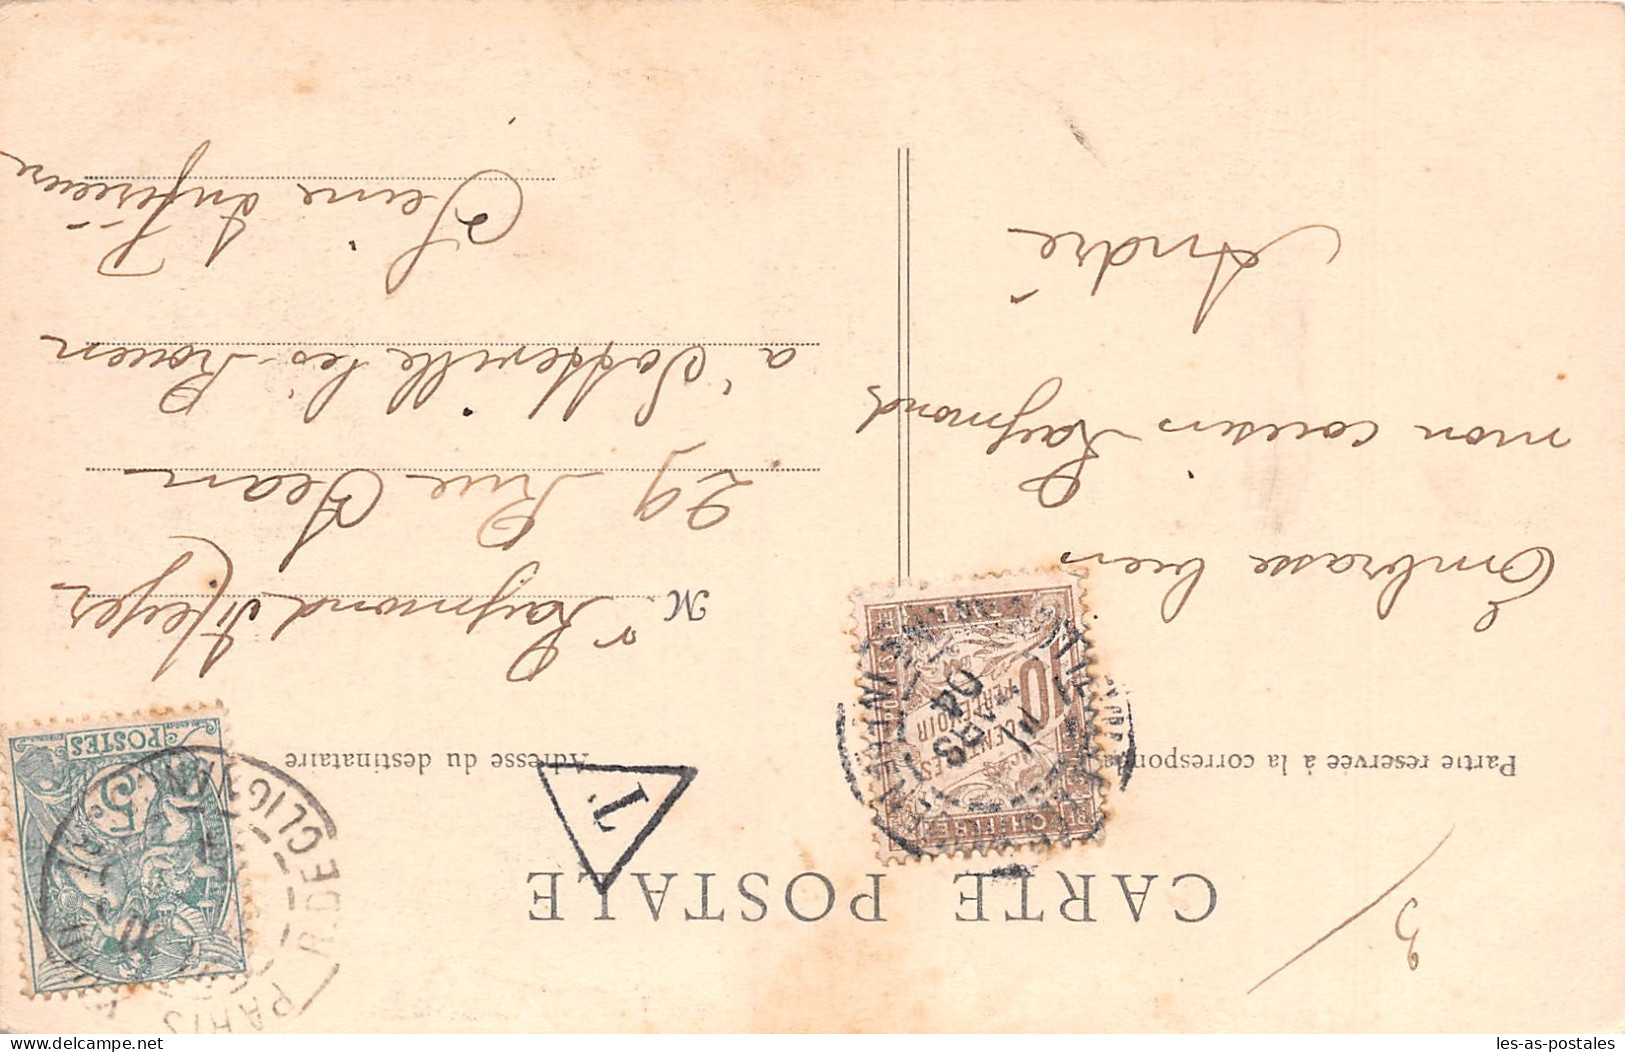 CARTE POSTALE
Partie reservée à la correspond
Adresse du destinataire
3
Embrasse bien
mon cousin Raymond
André
M r Raymond Meyer
29 Rue Jean
à Sotteville les Rouen
Seine Inférieure
T
CHIFFRE
10
CENTIMES
A PERCEVOIR
04
POSTES
5c
PARIS
R. DE CLIGNANC
les-as-postales